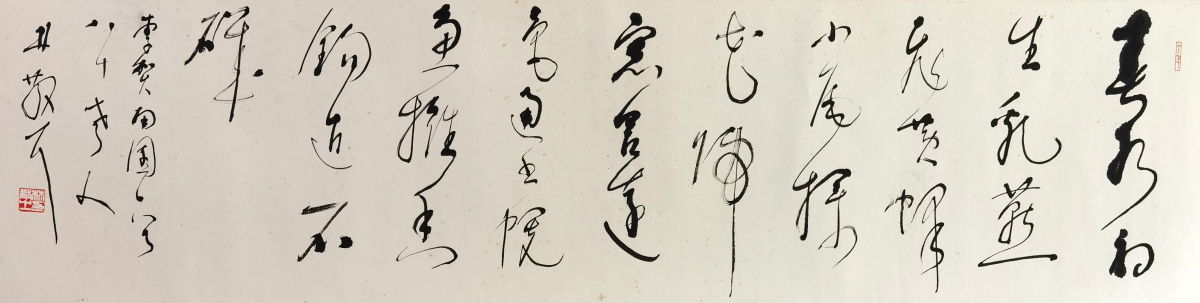 春水初
生乳燕
飛黄蜂
小尾撲
花歸
窓含遠
色通书幌
魚擁香
鉤近石
磯
李賀南園
八十老人
林散耳